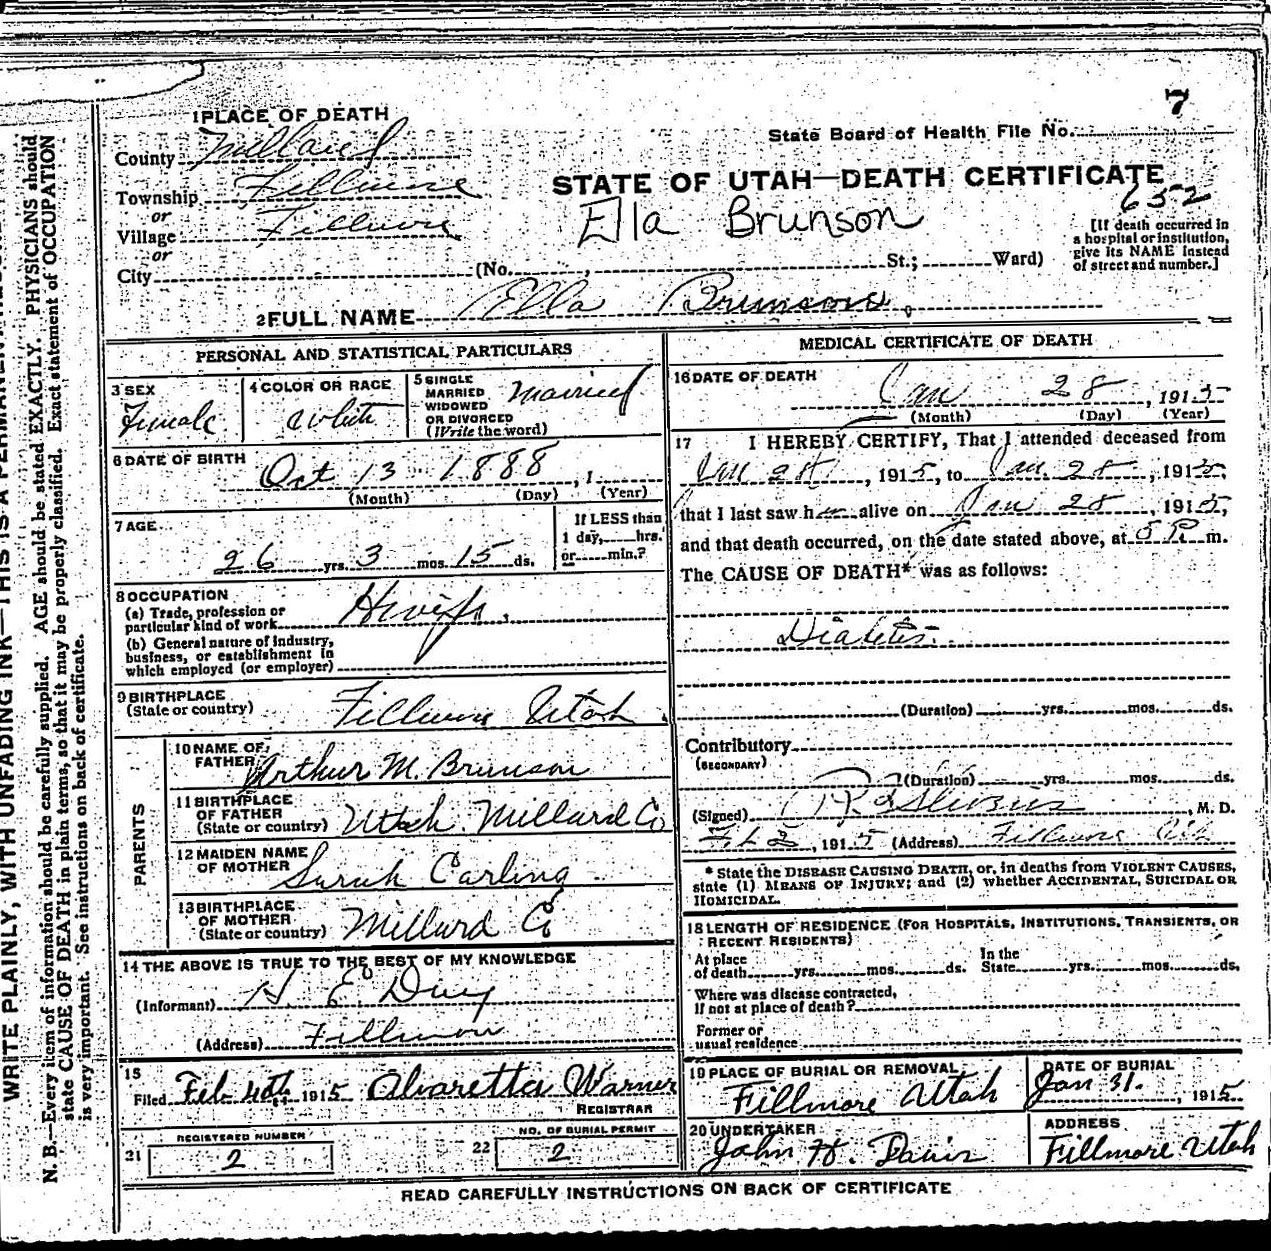 7
1 PLACE OF DEATH
State Board of Health File No.
County Millard
Township Fillmore
STATE OF UTAH—DEATH CERTIFICATE
652
or
Village Fillmore
Ella Brunson
or
City (No. , St.; Ward)
[If death occurred in
a hospital or institution,
give its NAME instead
of street and number.]
2 FULL NAME Ella Brunson
PERSONAL AND STATISTICAL PARTICULARS
3 SEX
Female
4 COLOR OR RACE
White
5 SINGLE
MARRIED
WIDOWED
OR DIVORCED
(Write the word)
Married
6 DATE OF BIRTH
Oct 13 1888 , 1
(Month) (Day) (Year)
7 AGE
26 yrs. 3 mos. 15 ds.
If LESS than
1 day, hrs.
or min.?
8 OCCUPATION
(a) Trade, profession or
particular kind of work
(b) General nature of industry,
business, or establishment in
which employed (or employer)
9 BIRTHPLACE
(State or country) Fillmore Utah
PARENTS
10 NAME OF
FATHER Arthur M. Brunson
11 BIRTHPLACE
OF FATHER
(State or country) Utah Millard Co
12 MAIDEN NAME
OF MOTHER Sarah Carling
13 BIRTHPLACE
OF MOTHER
(State or country) Millard Co
14 THE ABOVE IS TRUE TO THE BEST OF MY KNOWLEDGE
(Informant) H. E. Day
(Address) Fillmore
15
Filed Feb. 4th 1915 Alvaretta Warner
REGISTRAR
21 REGISTERED NUMBER
2
22 NO. OF BURIAL PERMIT
2
MEDICAL CERTIFICATE OF DEATH
16 DATE OF DEATH
Jan 28 , 1915
(Month) (Day) (Year)
17 I HEREBY CERTIFY, That I attended deceased from
Jan 28 , 1915, to Jan. 28 , 1915,
that I last saw her alive on Jan 28 , 1915,
and that death occurred, on the date stated above, at 5 P. m.
The CAUSE OF DEATH* was as follows:
Diabetes.
(Duration) yrs. mos. ds.
Contributory
(SECONDARY)
(Duration) yrs. mos. ds.
(Signed) Stevens , M. D.
Feb 2 , 1915 (Address) Fillmore Utah
* State the DISEASE CAUSING DEATH, or, in deaths from VIOLENT CAUSES,
state (1) MEANS OF INJURY; and (2) whether ACCIDENTAL, SUICIDAL OR
HOMICIDAL.
18 LENGTH OF RESIDENCE (FOR HOSPITALS, INSTITUTIONS, TRANSIENTS, OR
RECENT RESIDENTS)
At place
of death yrs. mos. ds.
In the
State yrs. mos. ds.
Where was disease contracted,
If not at place of death?
Former or
usual residence
19 PLACE OF BURIAL OR REMOVAL
Fillmore Utah
DATE OF BURIAL
Jan 31. , 1915
20 UNDERTAKER
John H. Davis
ADDRESS
Fillmore Utah
READ CAREFULLY INSTRUCTIONS ON BACK OF CERTIFICATE
WRITE PLAINLY, WITH UNFADING INK—THIS IS A PERMANENT
N. B.—Every item of information should be carefully supplied. AGE should be stated EXACTLY. PHYSICIANS should
state CAUSE OF DEATH in plain terms, so that it may be properly classified. Exact statement of OCCUPATION
is very important. See instructions on back of certificate.